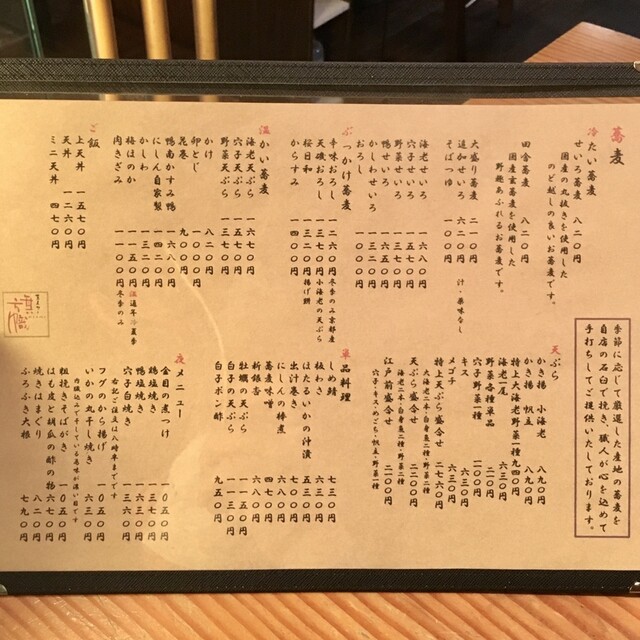 蕎麦
冷たい蕎麦
せいろ蕎麦 八二〇円
国産の丸抜きを使用した
のど越しの良いお蕎麦です。
田舎蕎麦 八二〇円
国産玄蕎麦を使用した
野趣あふれるお蕎麦です。
大盛り蕎麦 二一〇円
追加せいろ 六二〇円 汁・薬味なし
そばつゆ 一〇〇円
海老せいろ 一六八〇円
穴子せいろ
野菜せいろ
鴨せいろ
かしわせいろ
おろし 九〇〇円
ぶっかけ蕎麦
辛味おろし 冬季のみ京都産
天磯おろし 一三七〇円 小海老の天ぷら
桜日和 揚げ餅
からすみ
温かい蕎麦
海老天ぷら 一六七〇円
穴子天ぷら 一五七〇円
野菜天ぷら 一三七〇円
かけ 八二〇円
卵とじ
昆巻
鴨南かすみ鴨 一六八〇円
にしん自家製 一四二〇円
かしわ 一三二〇円
梅ほのか 一一五〇円 温通年冷夏季
肉きざみ 一一〇〇円 冬季のみ
ご飯
上天丼 一五七〇円
天丼 一二六〇円
ミニ天丼 四七〇円
季節に応じて厳選した産地の蕎麦を
自店の石臼で挽き、職人が心を込めて
手打ちしてご提供いたしております。
天ぷら
かき揚 小海老 八九〇円
かき揚 帆立 八九〇円
特上大海老野菜一種 九四〇円
海老一尾
野菜各種単品
穴子野菜一種
キス 六三〇円
メゴチ 六三〇円
特上天ぷら盛合せ
大海老二本・白身魚二種・野菜二種
天ぷら盛合せ
海老二本・白身魚一種・野菜二種
江戸前盛合せ
穴子・キス・めごち・帆立・野菜一種
単品料理
しめ鯖 七三〇円
板わさ 六三〇円
ほたるいかの汁漬 五三〇円
出汁巻き 七八〇円
にしんの棒煮
蕎麦味噌 四七〇円
新銀杏 六八〇円
牡蠣の天ぷら
白子の天ぷら 一一三〇円
白子ポン酢 九五〇円
夜メニュー
金目の煮つけ 一〇五〇円
鶏塩焼き
鴨塩焼き
穴子白焼き 一三六〇円
右記ご注文は八時半までです
フグのから揚げ 一〇五〇円
いかの丸干し焼き 六三〇円
内臓込みで干している為味が濃い目です
粗挽きそばがき 一〇五〇円
はも皮と胡瓜の酢の物 六七〇円
焼きはまぐり 八二〇円
ふろふき大根 七九〇円